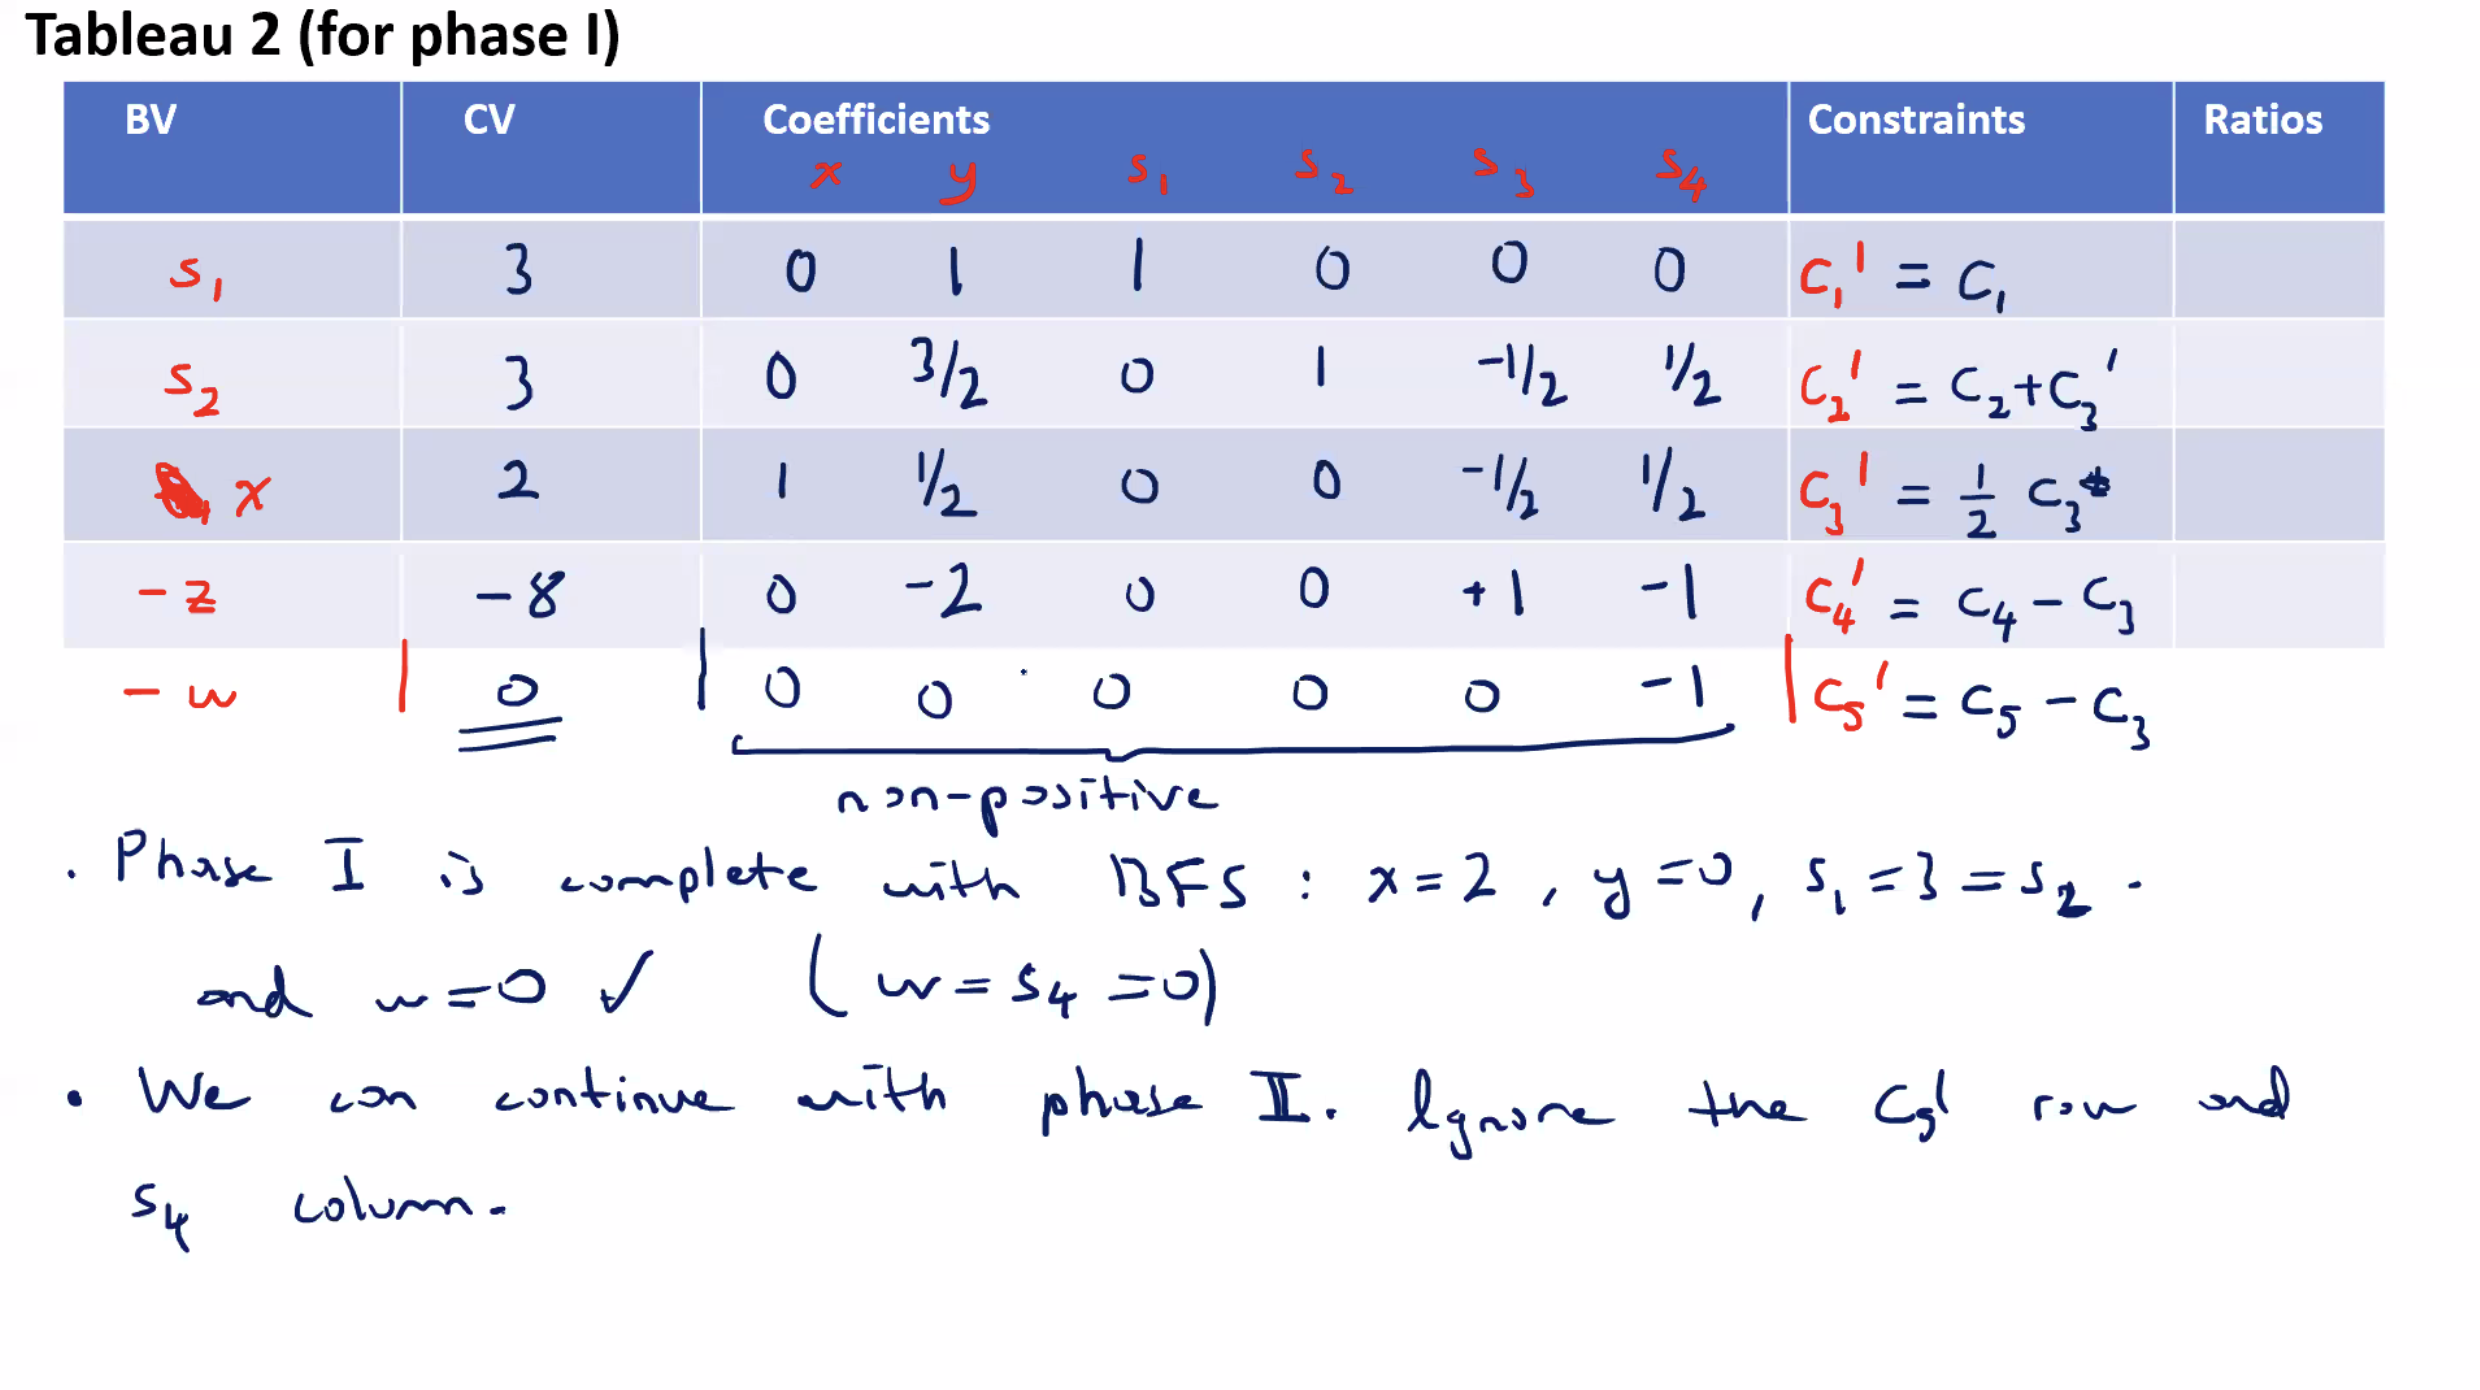 Tableau 2 (for phase I)
BV CV Coefficients Constraints Ratios
x y s₁ s₂ s₃ s₄
s₁ 3 0 1 1 0 0 0 C₁' = C₁
s₂ 3 0 3/2 0 1 -1/2 1/2 C₂' = C₂+C₃'
x 2 1 1/2 0 0 -1/2 1/2 C₃' = 1/2 C₃*
-z -8 0 -2 0 0 +1 -1 C₄' = C₄ - C₃
-w 0 0 0 0 0 0 -1 C₅' = C₅ - C₃
non-positive
. Phase I is complete with BFS : x=2, y=0, s₁=3=s₂.
and w=0 ✓ (w=s₄=0)
. We can continue with phase II. Ignore the C₅' row and
s₄ column.